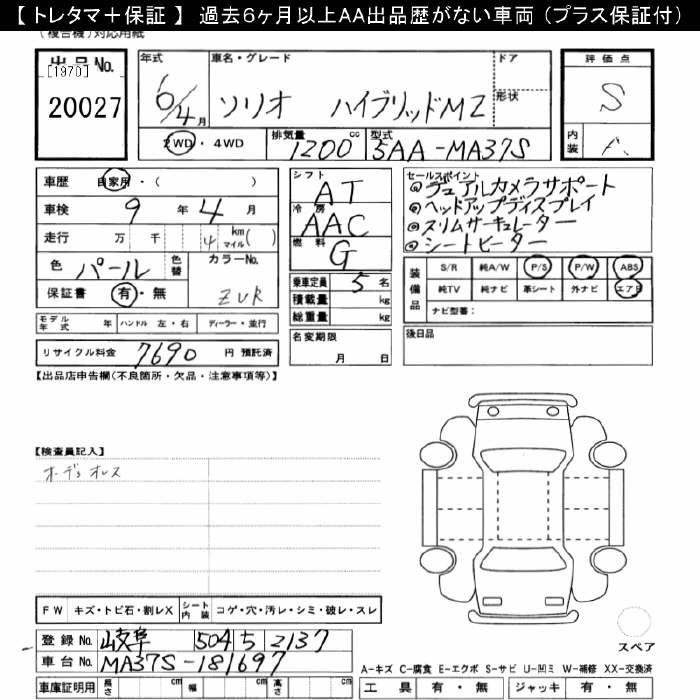 【 トレタマ＋保証 】 過去６ヶ月以上AA出品歴がない車両 (プラス保証付)
(複合機)対応用紙
出品No.
[1970]
20027
年式
6/4月
車名・グレード
ソリオ ハイブリッドMZ
ドア
形状
評価点
S
内装
A
2WD・4WD
排気量
1200 cc
型式
5AA-MA37S
車歴 自家用・( )
車検 9年4月
走行 万 千 4 km マイル( )
色 パール 色替
カラーNo.
ZVR
保証書 有・無
シフト
AT
冷房
AAC
燃料
G
乗車定員 5名
積載量 kg
総重量 kg
セールスポイント
◎デュアルカメラサポート
◎ヘッドアップディスプレイ
◎スリムサーキュレーター
◎シートヒーター
装備品
S/R 純A/W P/S P/W ABS
純TV 純ナビ 革シート 外ナビ エアB
ナビ型番：
モデル年式 年 ハンドル 左・右 ディーラー・並行
リサイクル料金 7690 円 預託済
名変期限
月 日
後日品
【出品店申告欄(不良箇所・欠品・注意事項等)】
【検査員記入】
オーディオレス
FW キズ・トビ石・割レX シート内装 コゲ・穴・汚レ・シミ・破レ・スレ
登録No. 岐阜 504 ち 2137
車台No. MA37S-181697
車庫証明用 長さ cm 幅 cm 高さ cm
スペア
A-キズ C-腐食 E-エクボ S-サビ U-凹ミ W-補修 XX-交換済
工具 有・無 ジャッキ 有・無